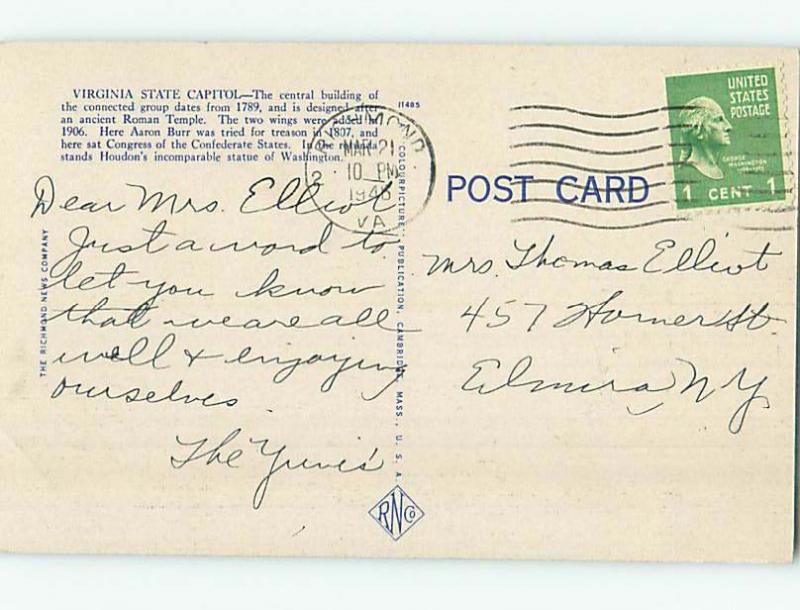 VIRGINIA STATE CAPITOL—The central building of
the connected group dates from 1789, and is designed after
an ancient Roman Temple. The two wings were added in
1906. Here Aaron Burr was tried for treason in 1807, and
here sat Congress of the Confederate States. In the rotunda
stands Houdon's incomparable statue of Washington.
11485
RICHMOND
2
MAR 21
10 PM
1946
VA
UNITED
STATES
POSTAGE
GEORGE
WASHINGTON
1 CENT 1
POST CARD
Dear Mrs. Elliot
Just a word to
let you know
that we are all
well & enjoying
ourselves.
The
Mrs. Thomas Elliot
457 Horner St.
Elmira, N Y
THE RICHMOND NEWS COMPANY
COLOURPICTURE PUBLICATION, CAMBRIDGE, MASS., U. S. A.
RNCo